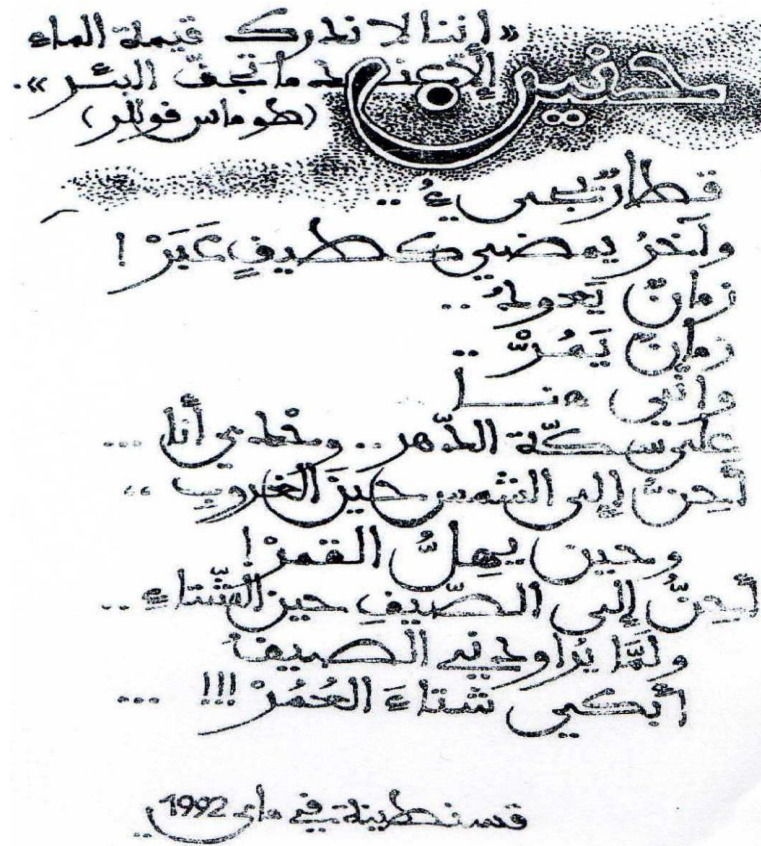 حنين
«إننا لا ندرك قيمة الماء
إلا عندما تجفّ البئر».
(طوماس فوللر)
قطارٌ يجيءُ ..
وآخرُ يمضي كطيفٍ عَبَرْ !
زمانٌ يَعودُ ..
زمانٌ يَمُرّْ ..
وإنّي هنا
على سكّة الدّهر .. وحْدي أنا ...
أحِنُّ إلى الشمس حينَ الغروبِ ..
وحين يهِلُّ القمرْ !
أحِنُّ إلى الصّيفِ حين الشّتاء ..
ولمّا يُراودني الصيفُ
أبكي شتاءَ العُمُرْ !!! ...
قسنطينة في ماي 1992